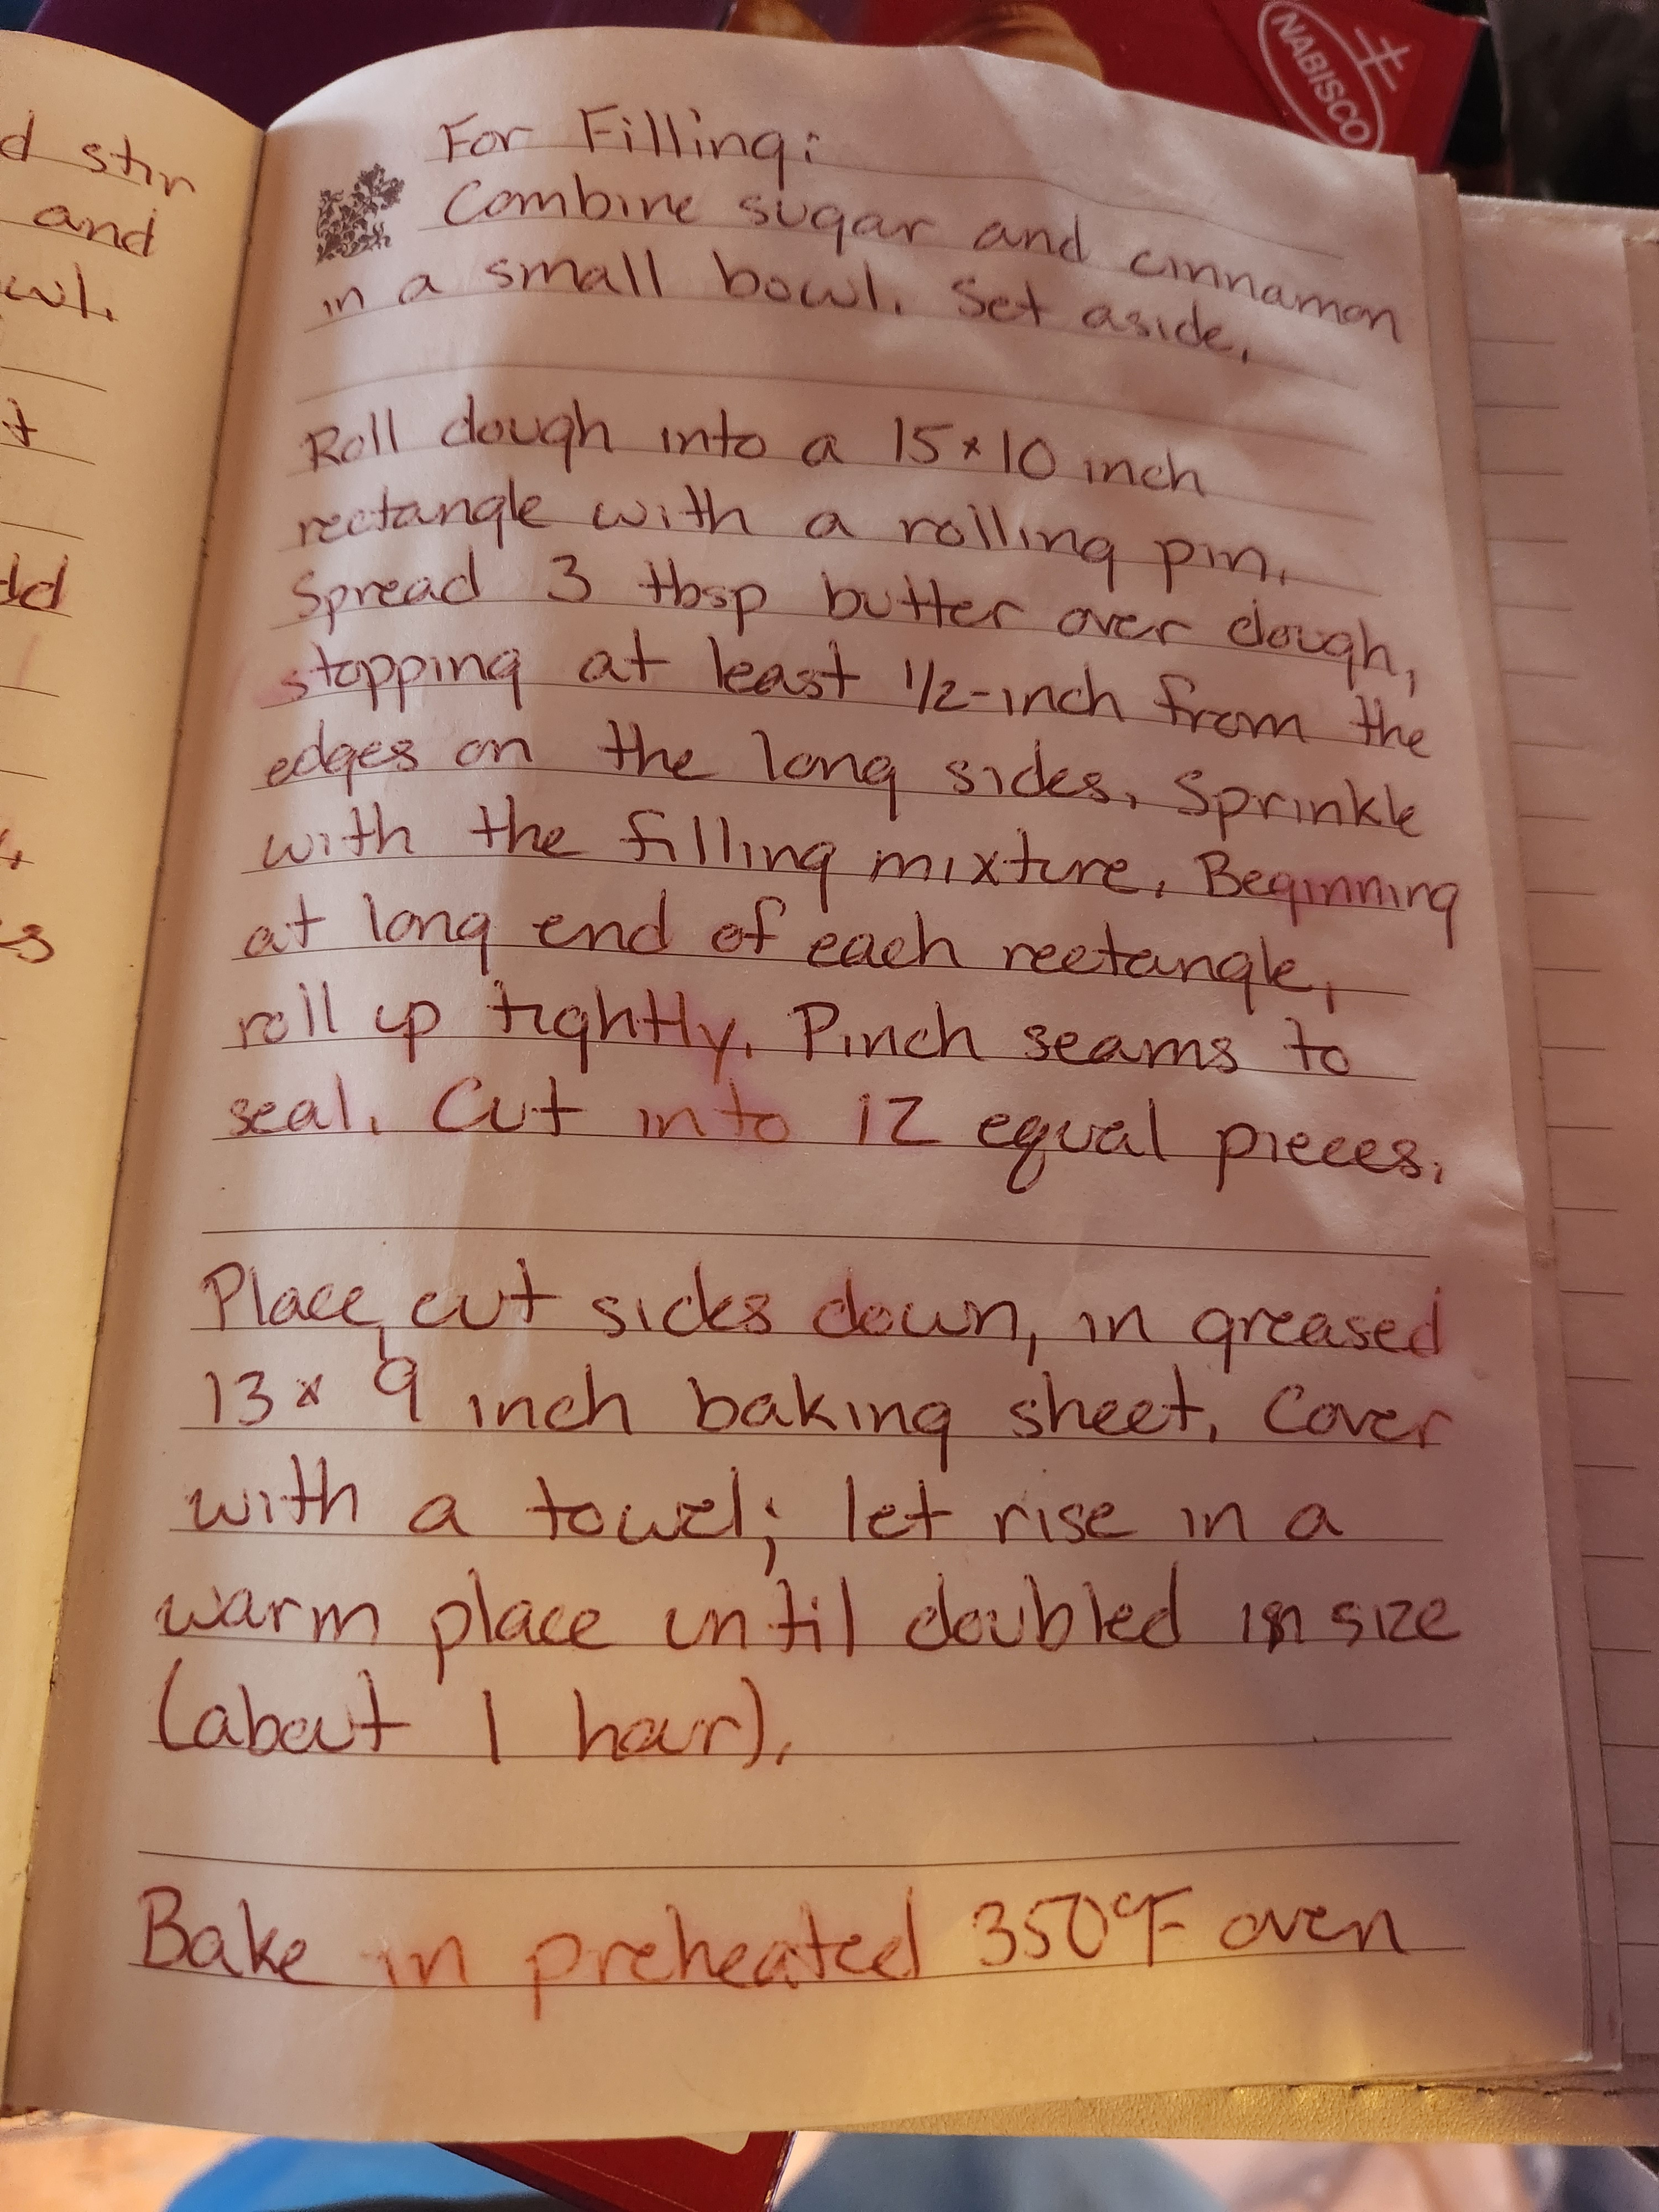 NABISCO
d stir
and
owl.
t
dd
s
For Filling:
Combine sugar and cinnamon
in a small bowl. Set aside.
Roll dough into a 15x10 inch
rectangle with a rolling pin.
Spread 3 tbsp butter over dough,
stopping at least 1/2-inch from the
edges on the long sides. Sprinkle
with the filling mixture. Beginning
at long end of each rectangle,
roll up tightly. Pinch seams to
seal. Cut into 12 equal pieces.
Place, cut sides down, in greased
13x9 inch baking sheet. Cover
with a towel; let rise in a
warm place until doubled in size
(about 1 hour).
Bake in preheated 350°F oven